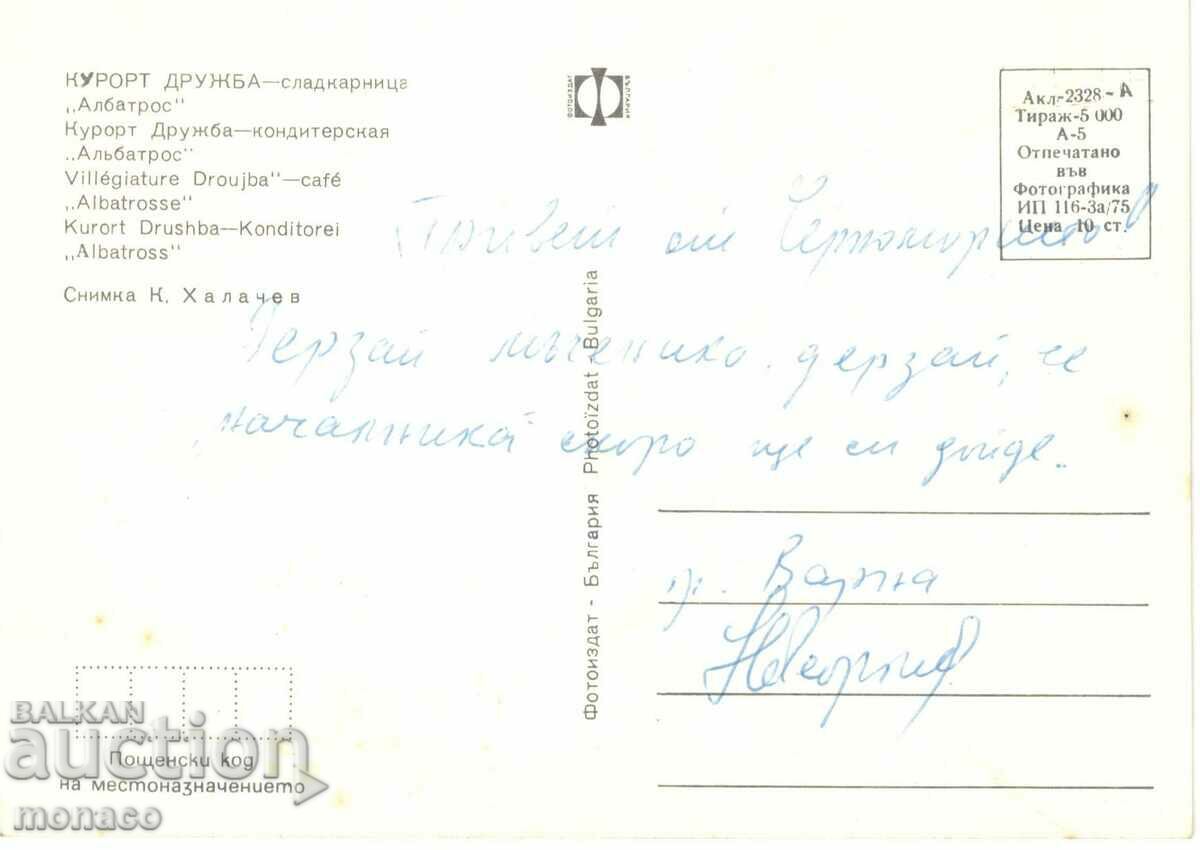 КУРОРТ ДРУЖБА—сладкарница
„Албатрос"
Курорт Дружба—кондитерская
„Альбатрос"
Villégiature Droujba"—café
„Albatrosse"
Kurort Drushba—Konditorei
„Albatross"
Снимка К. Халачев
ФОТОИЗДАТ
БЪЛГАРИЯ
Акл-2328-А
Тираж-5 000
А-5
Отпечатано
във
Фотографика
ИП 116-За/75
Цена 10 ст.
Привет от Черноморието!
Дерзай мъченико, дерзай, че
„началника" скоро ще си дойде..
Фотоиздат - България Photoïzdat - Bulgaria
гр. Варна
Пощенски код
на местоназначението
BALKAN
auction
monaco